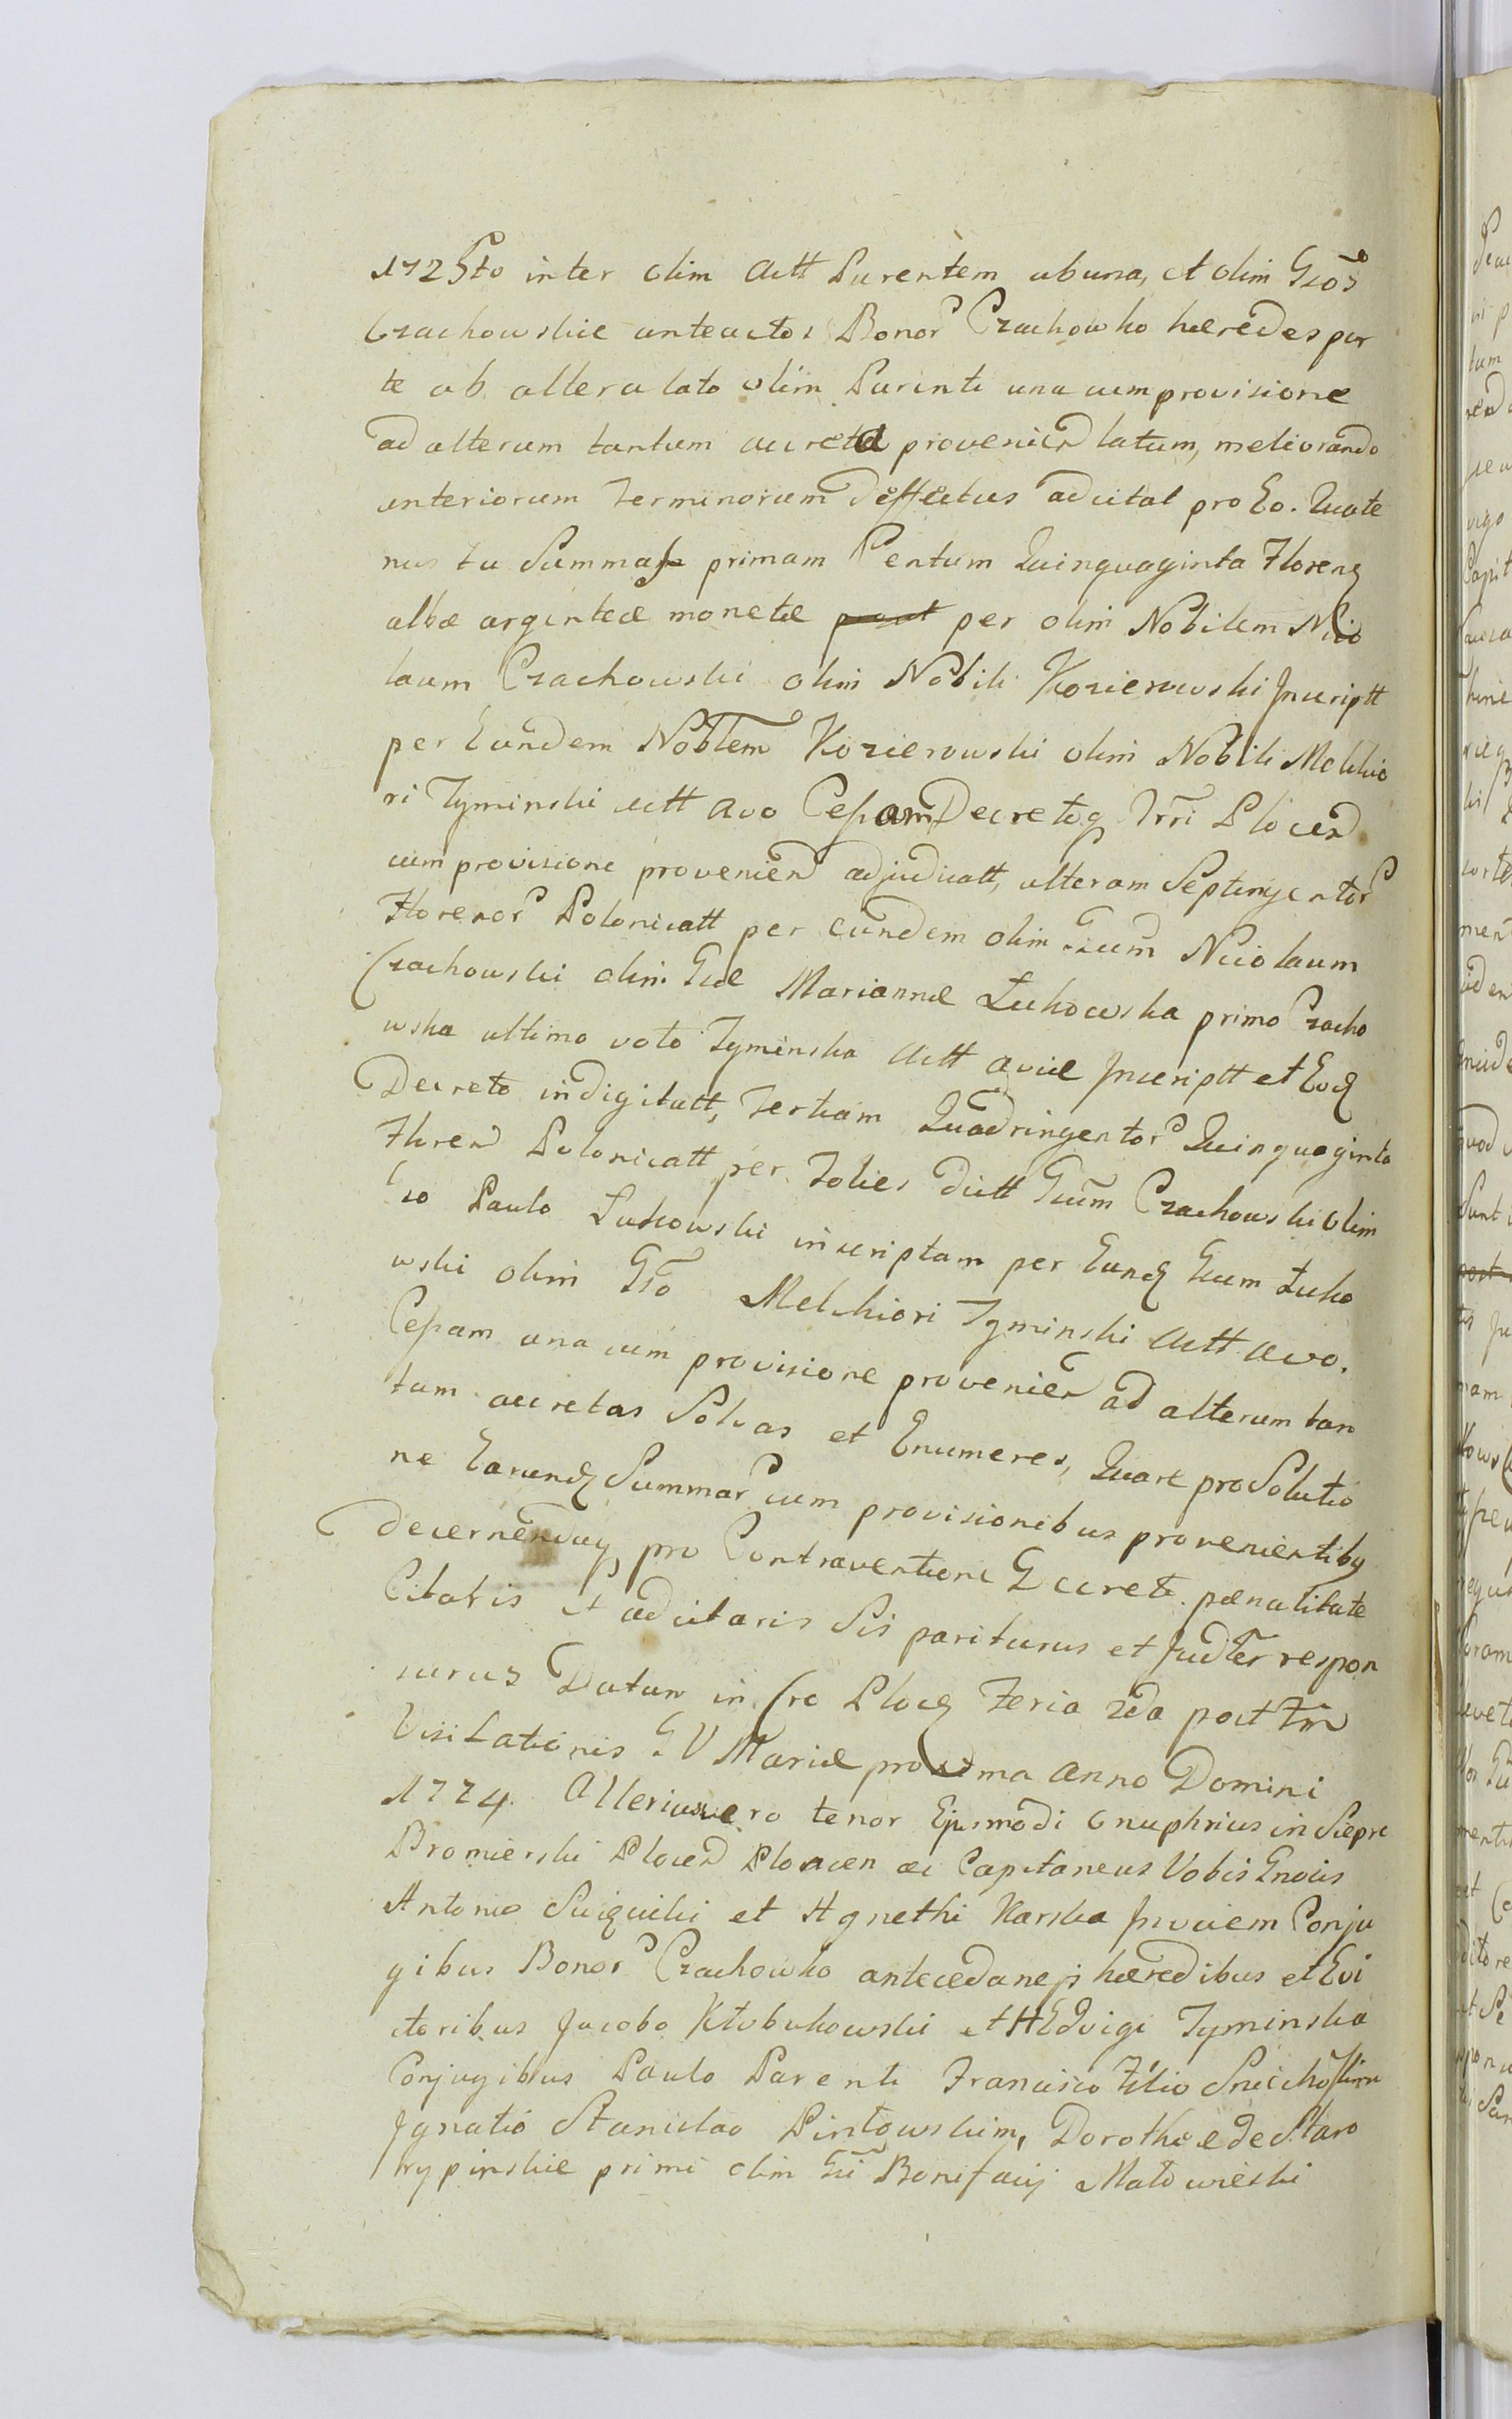 1725to inter olim Actt Parentem ab una, et olim Gsos
Czachowskie anteactos Bonor Czachowko hæredes par
te ab altera lato olim Parenti una cum provisione
ad alterum tantum accreta provenien latum, meliorando
anteriorum Terminorum deffectus adcitat pro Eo. Quate
nus tu Summas primam Centum Quinquaginta Floren
albæ argenteæ monetæ per olim Nobilem Nico
laum Czachowski olim Nobili Kozierowski Inscriptt
per Eundem Noblem Kozierowski olim Nobili Melchio
ri Tyminski actt avo Cessam Decretoq Trri Plocen
cum provisione provenien adjudicatt, alteram Septingentor
Florenor Polonicatt per eundem olim Gsum Nicolaum
Czachowski olim Gsæ Mariannæ Łukowska primo Czacho
wska ultimo voto Tyminska Actt aviæ Inscriptt et Eod
Decreto indigitatt, Tertiam Quadringentor Quinquaginta
Floren Polonicatt per Toties dictt Gsum Czachowski olim
Gso Paulo Łukowski inscriptam per Eund Gsum Łuko
wski olim Gso Melchiori Tyminski Actt avo.
Cessam una cum provisione provenien ad alterum tan
tum accretas Solvas et Enumeres, Quare pro Solutio
ne Earund Summar cum provisionibus provenientibq
decernenduq pro Contraventione Decreti pœnalitate
Citatis et adcitaris Sis pariturus et Judter respon
surus Datum in Cro Ploc Feria 2da post Fm
Visitationis B V Mariæ proxima Anno Domini
1774. Alterius vero tenor Ejusmodi Onuphrius in Siepre
Bromierski Plocen Plocen ac Capitaneus Vobis Gnosis
Antonio et Agnethi Karska Invicem Conju
gibus Bonor Czachowko antecedaneis hæredibus et Evi
ctoribus Jacobo Kłobukowski et HEdvigi Tyminska
Conjugibus Paulo Parenti Francisco Filio
Ignatio Stanislao Dorotheæ de Staro
rypinskie primi olim Gsi Bonifacij Małowieski